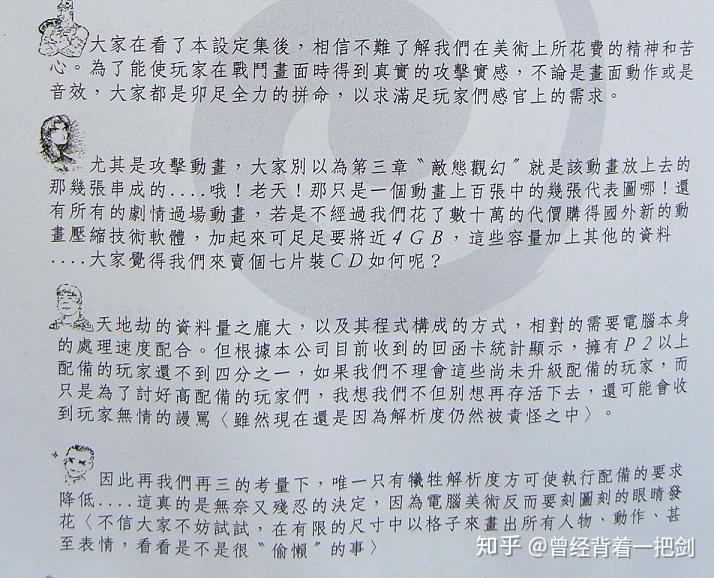 大家在看了本設定集後，相信不難了解我們在美術上所花費的精神和苦
心。為了能使玩家在戰鬥畫面時得到真實的攻擊實感，不論是畫面動作或是
音效，大家都是卯足全力的拼命，以求滿足玩家們感官上的需求。
尤其是攻擊動畫，大家別以為第三章〝敵態觀幻〞就是該動畫放上去的
那幾張串成的....哦！老天！那只是一個動畫上百張中的幾張代表圖哪！還
有所有的劇情過場動畫，若是不經過我們花了數十萬的代價購得國外新的動
畫壓縮技術軟體，加起來可足足要將近4GB，這些容量加上其他的資料
....大家覺得我們來賣個七片裝CD如何呢？
天地劫的資料量之龐大，以及其程式構成的方式，相對的需要電腦本身
的處理速度配合。但根據本公司目前收到的回函卡統計顯示，擁有P2以上
配備的玩家還不到四分之一，如果我們不理會這些尚未升級配備的玩家，而
只是為了討好高配備的玩家們，我想我們不但別想再存活下去，還可能會收
到玩家無情的謾罵〈雖然現在還是因為解析度仍然被責怪之中〉。
因此再我們再三的考量下，唯一只有犧牲解析度方可使執行配備的要求
降低....這真的是無奈又殘忍的決定，因為電腦美術反而要刻圖刻的眼睛發
花〈不信大家不妨試試，在有限的尺寸中以格子來畫出所有人物、動作、甚
至表情，看看是不是很〝偷懶〞的事〉
知乎 @曾经背着一把剑